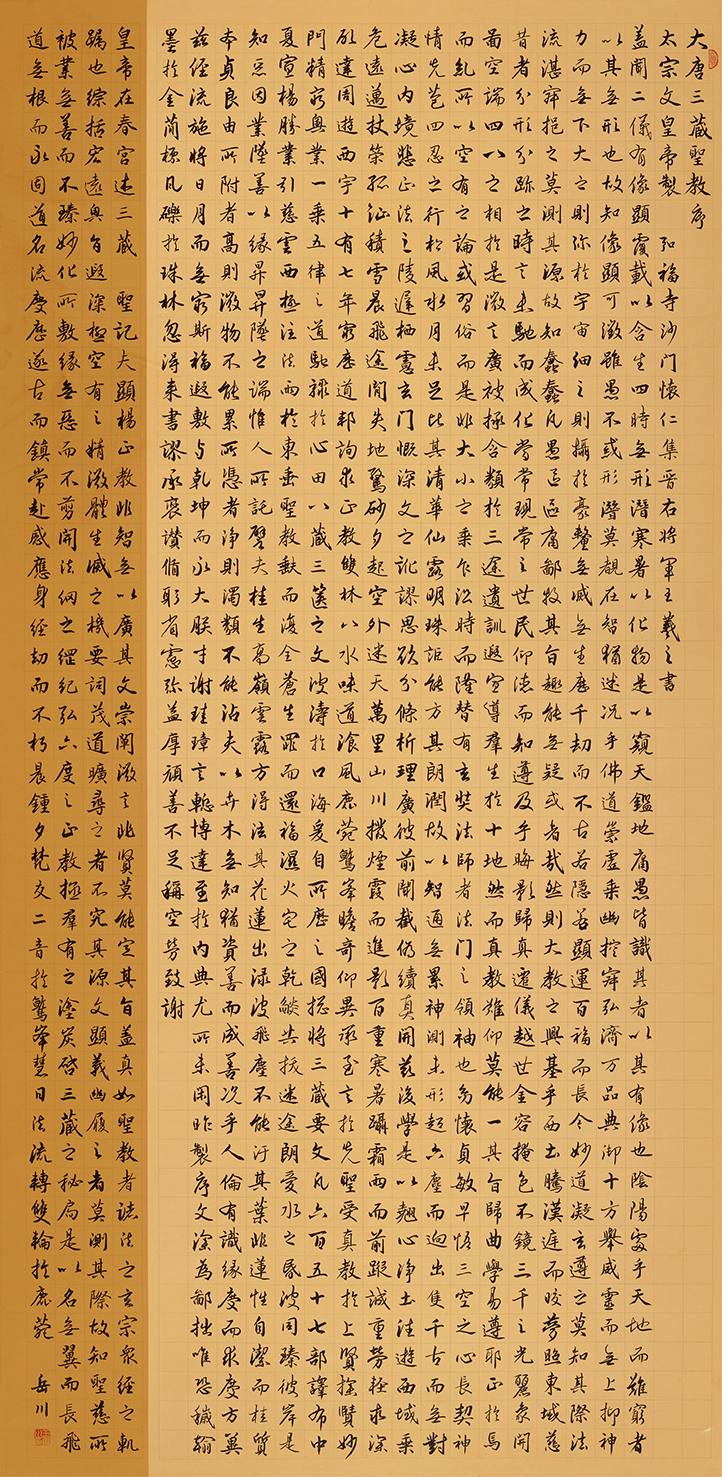 大唐三藏聖教序
太宗文皇帝製 弘福寺沙門懷仁集晉右將軍王羲之書
蓋聞二儀有像顯覆載以含生四時無形潛寒暑以化物是以窺天鑑地庸愚皆識其者以其有像也陰陽處乎天地而難窮者
以其無形也故知像顯可徵雖愚不惑形潛莫覩在智猶迷況乎佛道崇虛乘幽控寂弘濟万品典御十方舉威靈而無上抑神
力而無下大之則彌於宇宙細之則攝於豪釐無滅無生歷千劫而不古若隱若顯運百福而長今妙道凝玄遵之莫知其際法
流湛寂挹之莫測其源故知蠢蠢凡愚區區庸鄙投其旨趣能無疑或者哉然則大教之興基乎西土騰漢庭而皎夢照東域慈
昔者分形分跡之時言未馳而成化當常現常之世民仰德而知遵及乎晦影歸真遷儀越世金容掩色不鏡三千之光麗象開
圖空端四八之相於是微言廣被拯含類於三途遺訓遐宣導群生於十地然而真教難仰莫能一其旨歸曲學易遵邪正於焉
而乱所以空有之論或習俗而是非大小之乘乍沿時而隆替有玄奘法師者法門之領袖也幼懷貞敏早悟三空之心長契神
情先苞四忍之行松風水月未足比其清華仙露明珠詎能方其朗潤故以智通無累神測未形超六塵而迥出隻千古而無對
凝心內境悲正法之陵遲栖慮玄門慨深文之訛謬思欲分條析理廣彼前聞截偽續真開茲後學是以翹心淨土往遊西域乘
危遠邁杖策孤征積雪晨飛途閒失地驚砂夕起空外迷天萬里山川撥煙霞而進影百重寒暑躡霜雨而前蹤誠重勞輕求深
願達周遊西宇十有七年窮歷道邦詢求正教雙林八水味道飡風鹿菀鷲峯瞻奇仰異承至言於先聖受真教於上賢探賾妙
門精窮奧業一乘五律之道馳驟於心田八藏三篋之文波濤於口海爰自所歷之國總將三藏要文凡六百五十七部譯布中
夏宣楊勝業引慈雲西極注法雨於東垂聖教缺而復全蒼生罪而還福濕火宅之乾燄共拔迷途朗愛水之昏波同臻彼岸是
知惡因業墜善以緣昇昇墜之端惟人所託譬夫桂生高嶺雲露方得泫其花蓮出淥波飛塵不能汙其葉非蓮性自潔而桂質
本貞良由所附者高則微物不能累所憑者淨則濁類不能沾夫以卉木無知猶資善而成善況乎人倫有識緣慶而求慶方冀
茲經流施將日月而無窮斯福遐敷与乾坤而永大朕才謝珪璋言慙博達至於內典尤所未閑昨製序文深為鄙拙唯恐穢翰
墨於金簡標凡礫於珠林忽得來書謬承褒讚循躬省慮彌益厚顏善不足稱空勞致謝
皇帝在春宮述三藏 聖記夫顯楊正教非智無以廣其文崇闡微言非賢莫能定其旨蓋真如聖教者諸法之玄宗眾經之軌
躅也綜括宏遠奧旨遐深極空有之精微體生滅之機要詞茂道曠尋之者不究其源文顯義幽履之者莫測其際故知聖慈所
被業無善而不臻妙化所敷緣無惡而不剪開法網之綱紀弘六度之正教拯群有之塗炭啓三藏之秘扃是以名無翼而長飛
道無根而永固道名流慶歷遂古而鎮常赴感應身經劫而不朽晨鍾夕梵交二音於鷲峯慧日法流轉雙輪於鹿菀 岳川